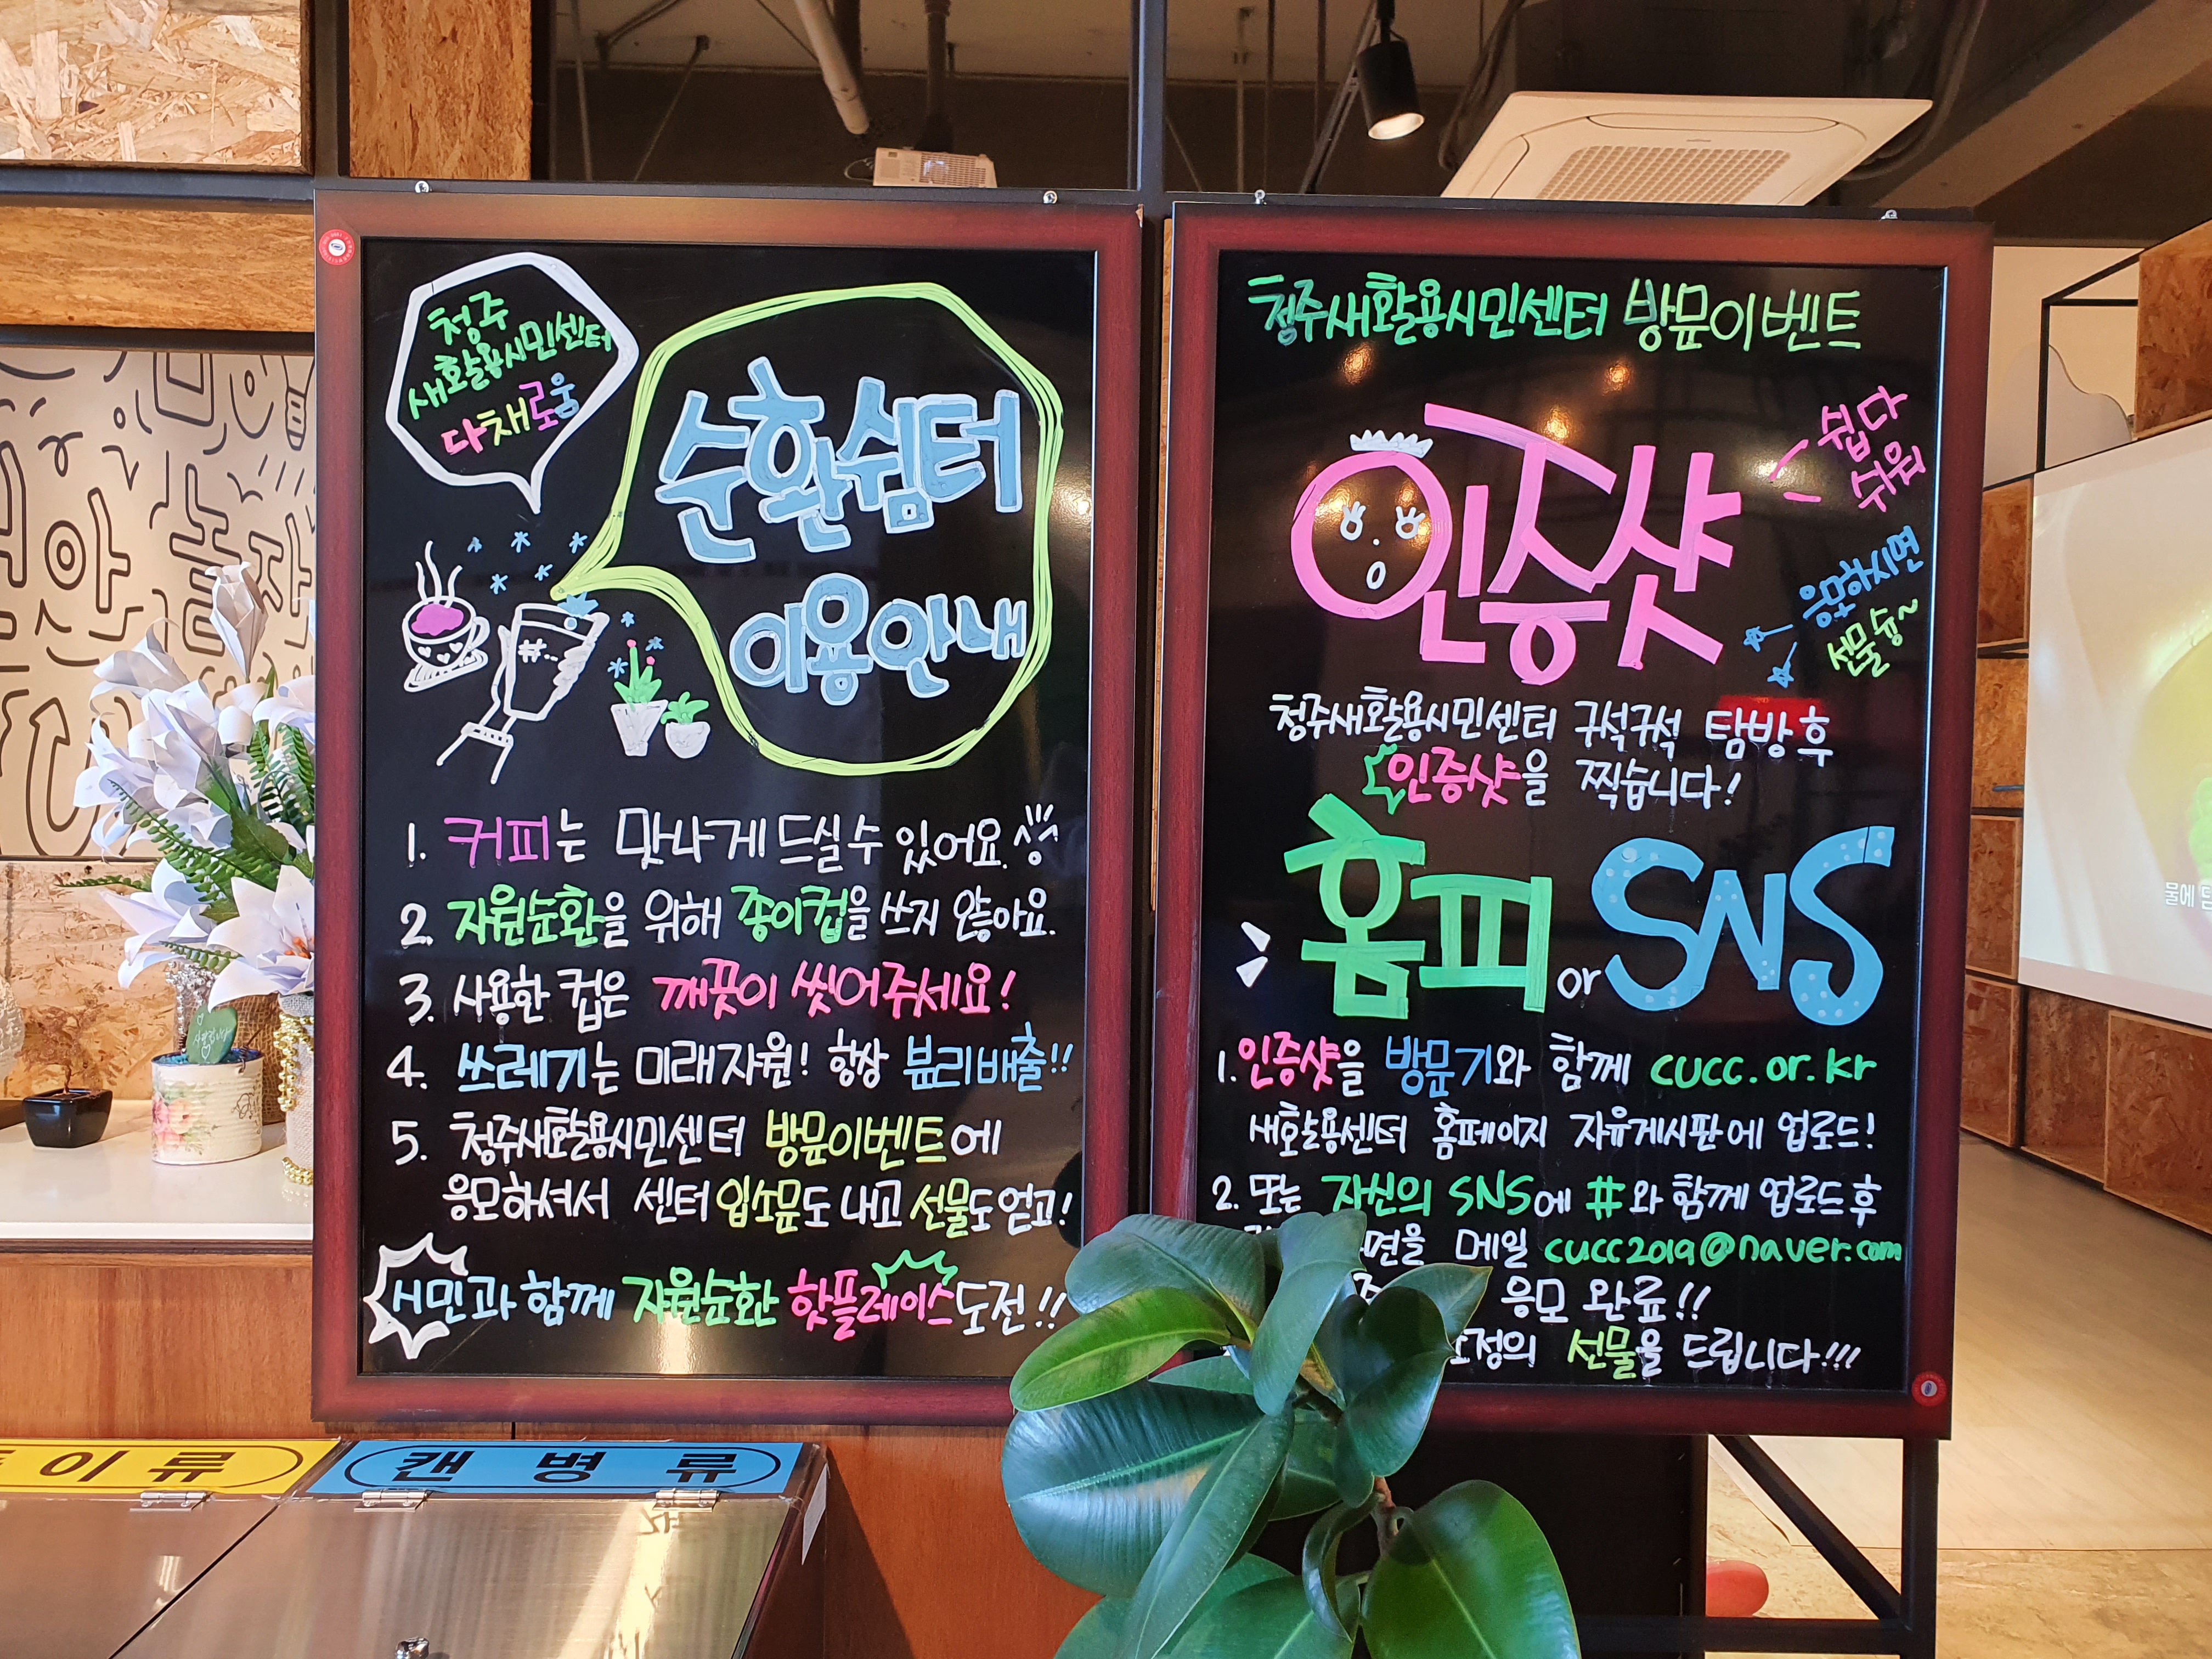 청주
새활용시민센터
다채로움
순환쉼터
이용안내
#...
1. 커피는 맛나게 드실 수 있어요.
2. 자원순환을 위해 종이컵을 쓰지 않아요.
3. 사용한 컵은 깨끗이 씻어주세요!
4. 쓰레기는 미래자원! 항상 분리배출!!
5. 청주새활용시민센터 방문이벤트에
응모하셔서 센터 입소문도 내고 선물도 얻고!
시민과 함께 자원순환 핫플레이스 도전!!
청주새활용시민센터 방문이벤트
인증샷
쉽다
쉬워
응모하시면
선물 슝~
청주새활용시민센터 구석구석 탐방 후
인증샷을 찍습니다!
홈피 or SNS
1. 인증샷을 방문기와 함께 cucc.or.kr
새활용센터 홈페이지 자유게시판에 업로드!
2. 또는 자신의 SNS에 #와 함께 업로드 후
메일 cucc2019@naver.com
응모 완료!!
선물을 드립니다!!!
이류
캔병류
놀자
물에